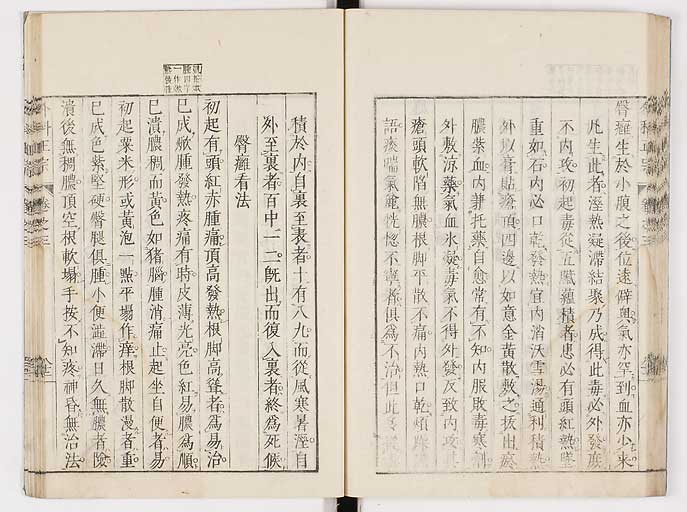 臀癰生於小腹之後位遠僻奧氣亦罕到血亦小來
凡生此者溼熱凝滯結聚乃成得此毒必外發庶
不內攻初起毒從五臟蘊積者患必有頭紅熱墜
重如石內必口乾發熱宜內消沃雪湯通利積熱
外以膏貼瘡頂四邊以如意金黃散敷之拔出瘀
膿紫血內兼托藥自愈常有不知內服敗毒寒劑
外敷涼藥氣血氷凝毒氣不得外發反致內攻其
瘡頭軟陷無膿根脚平散不痛內熱口乾煩躁
語痰喘氣麄恍惚不寧者俱爲不治但此
積於內自裏至表者十有八九而從風寒暑溼自
外至裏者百中一二旣出而復入裏者終爲死候
臀癰看法
初起有頭紅赤腫痛頂高發熱根脚高聳者爲易治
已成焮腫發熱疼痛有時皮薄光亮色紅易膿爲順
已潰膿稠而黃色如猪腦腫消痛止起坐自便者易
初起粟米形或黃泡一點平塌作痒根脚散漫者重
已成色紫堅硬臀腿俱腫小便澁滯日久無膿者險
潰後無稠膿頂空根軟塌手按不知疼神昏無治法
外科正宗
卷之三